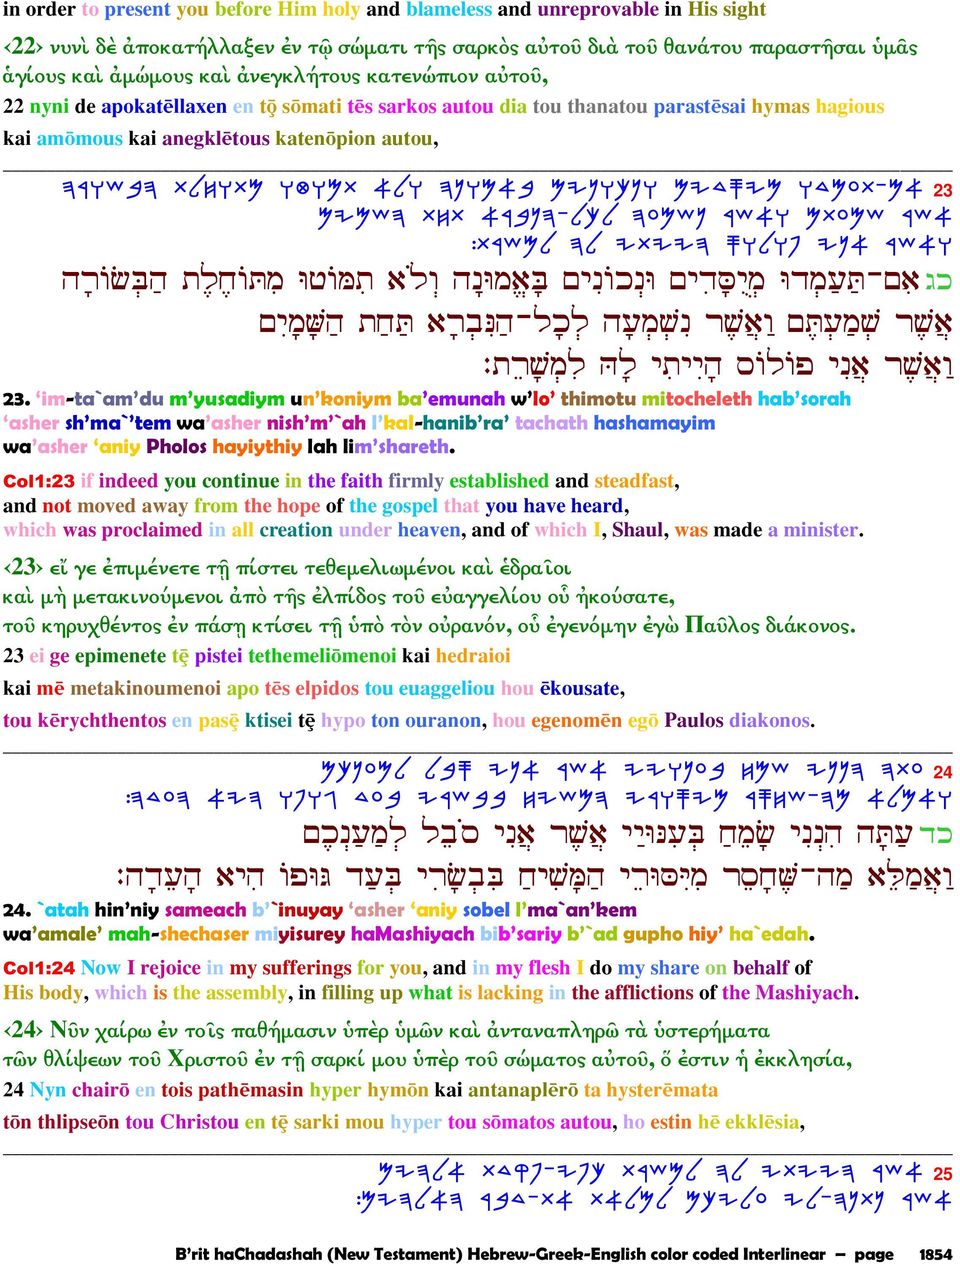 in order to present you before Him holy and blameless and unreprovable in His sight
‹22› νυνὶ δὲ ἀποκατήλλαξεν ἐν τῷ σώματι τῆς σαρκὸς αὐτοῦ διὰ τοῦ θανάτου παραστῆσαι ὑμᾶς
ἁγίους καὶ ἀμώμους καὶ ἀνεγκλήτους κατενώπιον αὐτοῦ,
22 nyni de apokatēllaxen en tō̧ sōmati tēs sarkos autou dia tou thanatou parastēsai hymas hagious
kai amōmous kai anegklētous katenōpion autou,
23 𐤀𐤌-𐤕𐤏𐤌𐤃𐤅 𐤌𐤉𐤎𐤃𐤉𐤌 𐤅𐤍𐤊𐤅𐤍𐤉𐤌 𐤁𐤀𐤌𐤅𐤍𐤄 𐤅𐤋𐤀 𐤕𐤌𐤅𐤈𐤅 𐤌𐤕𐤅𐤇𐤋𐤕 𐤄𐤁𐤔𐤅𐤓𐤄
𐤀𐤔𐤓 𐤔𐤌𐤏𐤕𐤌 𐤅𐤀𐤔𐤓 𐤍𐤔𐤌𐤏𐤄 𐤋𐤊𐤋-𐤄𐤍𐤁𐤓𐤀 𐤕𐤇𐤕 𐤄𐤔𐤌𐤉𐤌
𐤅𐤀𐤔𐤓 𐤀𐤍𐤉 𐤐𐤅𐤋𐤅𐤎 𐤄𐤉𐤉𐤕𐤉 𐤋𐤄 𐤋𐤌𐤔𐤓𐤕:
כג אִם־תַּעַמְדוּ מְיֻסָּדִים וּנְכוֹנִים בָּאֱמוּנָה וְלֹא תִמּוֹטוּ מִתּוֹחֶלֶת הַבְּשׂוֹרָה
אֲשֶׁר שְׁמַעְתֶּם וַאֲשֶׁר נִשְׁמְעָה לְכָל־הַנִּבְרָא תַּחַת הַשָּׁמָיִם
וַאֲשֶׁר אֲנִי פוֹלוֹס הָיִיתִי לָהּ לִמְשָׁרֵת׃
23. ‘im-ta`am’du m’yusadiym un’koniym ba’emunah w’lo’ thimotu mitocheleth hab’sorah
‘asher sh’ma`’tem wa’asher nish’m’`ah l’kal-hanib’ra’ tachath hashamayim
wa’asher ‘aniy Pholos hayiythiy lah lim’shareth.
Col1:23 if indeed you continue in the faith firmly established and steadfast,
and not moved away from the hope of the gospel that you have heard,
which was proclaimed in all creation under heaven, and of which I, Shaul, was made a minister.
‹23› εἴ γε ἐπιμένετε τῇ πίστει τεθεμελιωμένοι καὶ ἑδραῖοι
καὶ μὴ μετακινούμενοι ἀπὸ τῆς ἐλπίδος τοῦ εὐαγγελίου οὗ ἠκούσατε,
τοῦ κηρυχθέντος ἐν πάσῃ κτίσει τῇ ὑπὸ τὸν οὐρανόν, οὗ ἐγενόμην ἐγὼ Παῦλος διάκονος.
23 ei ge epimenete tȩ̄ pistei tethemeliōmenoi kai hedraioi
kai mē metakinoumenoi apo tēs elpidos tou euaggeliou hou ēkousate,
tou kērychthentos en pasȩ̄ ktisei tȩ̄ hypo ton ouranon, hou egenomēn egō Paulos diakonos.
24 𐤏𐤕𐤄 𐤄𐤍𐤍𐤉 𐤔𐤌𐤇 𐤁𐤏𐤍𐤅𐤉𐤉 𐤀𐤔𐤓 𐤀𐤍𐤉 𐤎𐤁𐤋 𐤋𐤌𐤏𐤍𐤊𐤌
𐤅𐤀𐤌𐤋𐤀 𐤌𐤄-𐤔𐤇𐤎𐤓 𐤌𐤉𐤎𐤅𐤓𐤉 𐤄𐤌𐤔𐤉𐤇 𐤁𐤁𐤔𐤓𐤉 𐤁𐤏𐤃 𐤂𐤅𐤐𐤅 𐤄𐤉𐤀 𐤄𐤏𐤃𐤄:
כד עַתָּה הִנְנִי שָׂמֵחַ בְּעִנּוּיַי אֲשֶׁר אֲנִי סֹבֵל לְמַעַנְכֶם
וַאֲמַלֵּא מַה־שֶּׁחָסֵר מִיִּסּוּרֵי הַמָּשִׁיחַ בִּבְשָׂרִי בְּעַד גּוּפוֹ הִיא הָעֵדָה׃
24. `atah hin’niy sameach b’`inuyay ‘asher ‘aniy sobel l’ma`an’kem
wa’amale’ mah-shechaser miyisurey haMashiyach bib’sariy b’`ad gupho hiy’ ha`edah.
Col1:24 Now I rejoice in my sufferings for you, and in my flesh I do my share on behalf of
His body, which is the assembly, in filling up what is lacking in the afflictions of the Mashiyach.
‹24› Νῦν χαίρω ἐν τοῖς παθήμασιν ὑπὲρ ὑμῶν καὶ ἀνταναπληρῶ τὰ ὑστερήματα
τῶν θλίψεων τοῦ Χριστοῦ ἐν τῇ σαρκί μου ὑπὲρ τοῦ σώματος αὐτοῦ, ὅ ἐστιν ἡ ἐκκλησία,
24 Nyn chairō en tois pathēmasin hyper hymōn kai antanaplērō ta hysterēmata
tōn thlipseōn tou Christou en tȩ̄ sarki mou hyper tou sōmatos autou, ho estin hē ekklēsia,
25 𐤀𐤔𐤓 𐤄𐤉𐤉𐤕𐤉 𐤋𐤄 𐤋𐤌𐤔𐤓𐤕 𐤊𐤐𐤉-𐤐𐤒𐤃𐤕 𐤀𐤋𐤄𐤉𐤌
𐤀𐤔𐤓 𐤍𐤕𐤅𐤍𐤄-𐤋𐤉 𐤏𐤋𐤉𐤊𐤌 𐤋𐤌𐤋𐤀𐤕 𐤀𐤕-𐤃𐤁𐤓 𐤄𐤀𐤋𐤄𐤉𐤌:
B’rit haChadashah (New Testament) Hebrew-Greek-English color coded Interlinear – page 1854